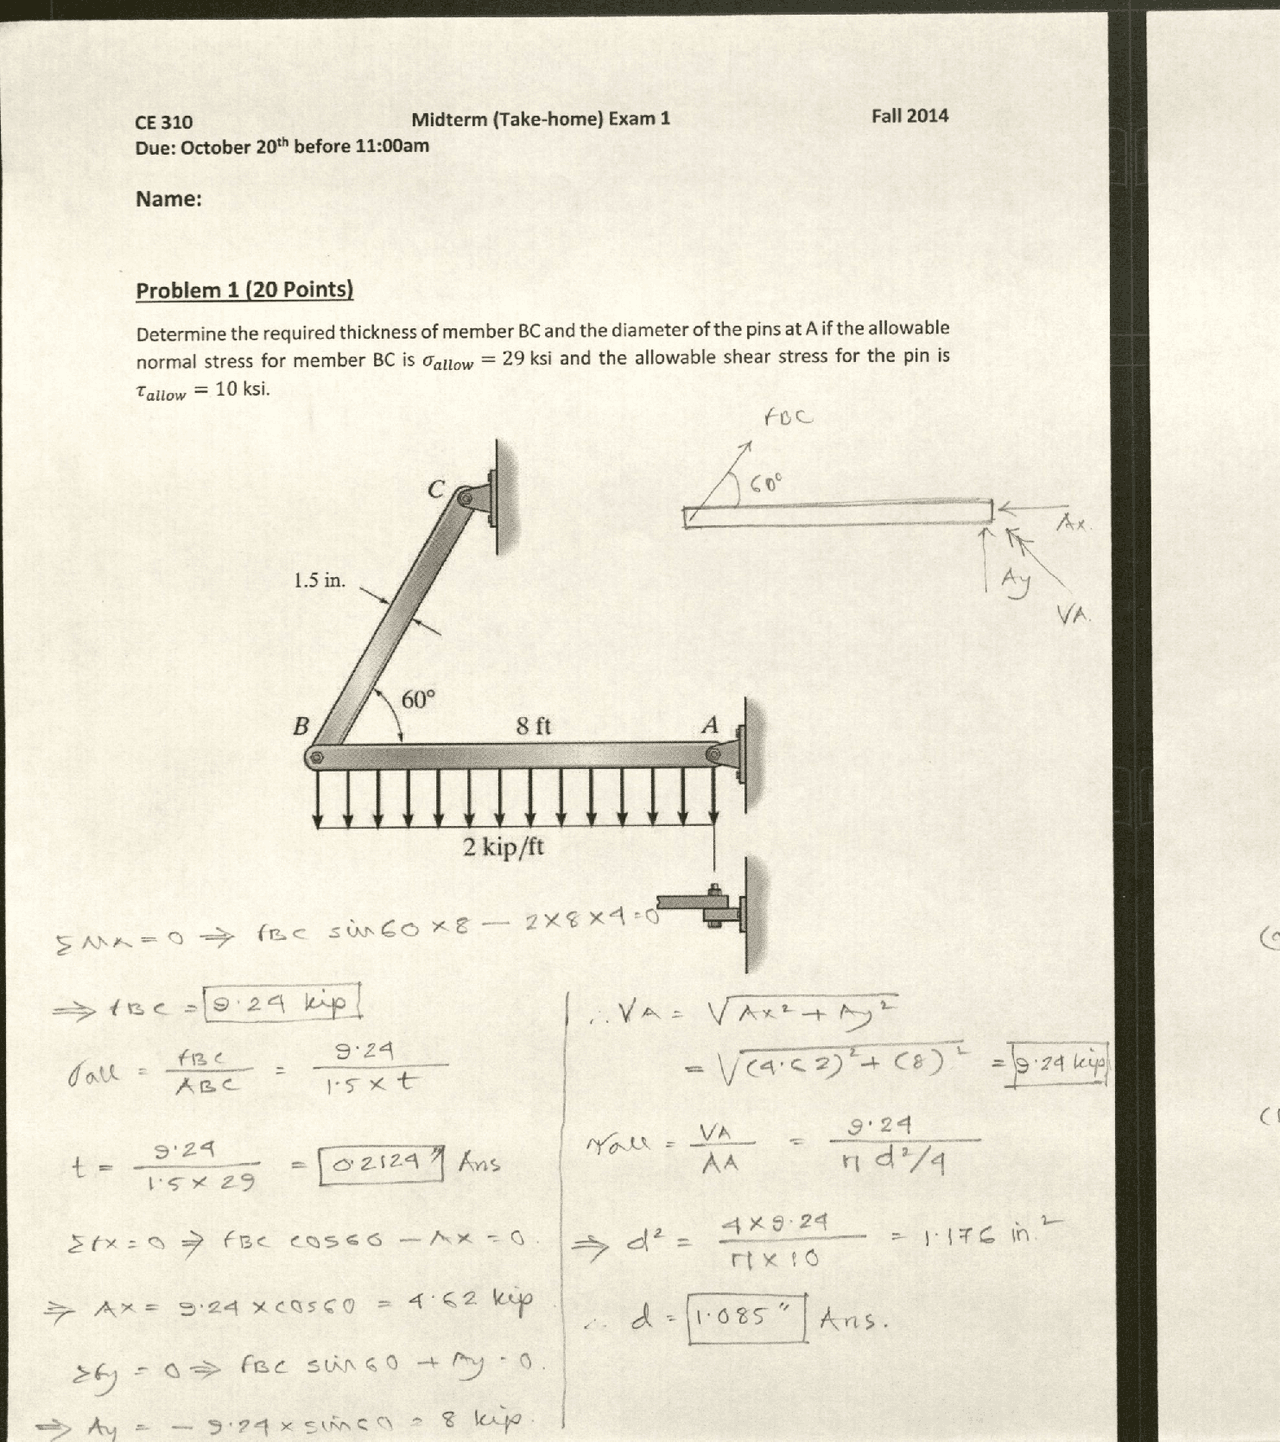 CE 310 Midterm (Take-home) Exam 1 Fall 2014
Due: October 20th before 11:00am
Name:
Problem 1 (20 Points)
Determine the required thickness of member BC and the diameter of the pins at A if the allowable
normal stress for member BC is σallow = 29 ksi and the allowable shear stress for the pin is
τallow = 10 ksi.
FBC
60°
Ax.
Ay
VA.
C
1.5 in.
60°
B
8 ft
A
2 kip/ft
ΣMA = 0 ⇒ FBC sin60 × 8 – 2×8×4 = 0
⇒ FBC = 9.24 kip
σall = FBC / ABC = 9.24 / 1.5 × t
t = 9.24 / 1.5 × 29 = 0.2124" Ans
ΣFx = 0 ⇒ FBC cos60 – Ax = 0.
⇒ Ax = 9.24 × cos60 = 4.62 kip
ΣFy = 0 ⇒ FBC sin60 + Ay = 0.
⇒ Ay = – 9.24 × sin60 = 8 kip.
∴ VA = √Ax² + Ay²
= √(4.62)² + (8)² = 9.24 kip
τall = VA / AA = 9.24 / π d²/4
⇒ d² = 4 × 9.24 / π × 10 = 1.176 in.²
∴ d = 1.085" Ans.